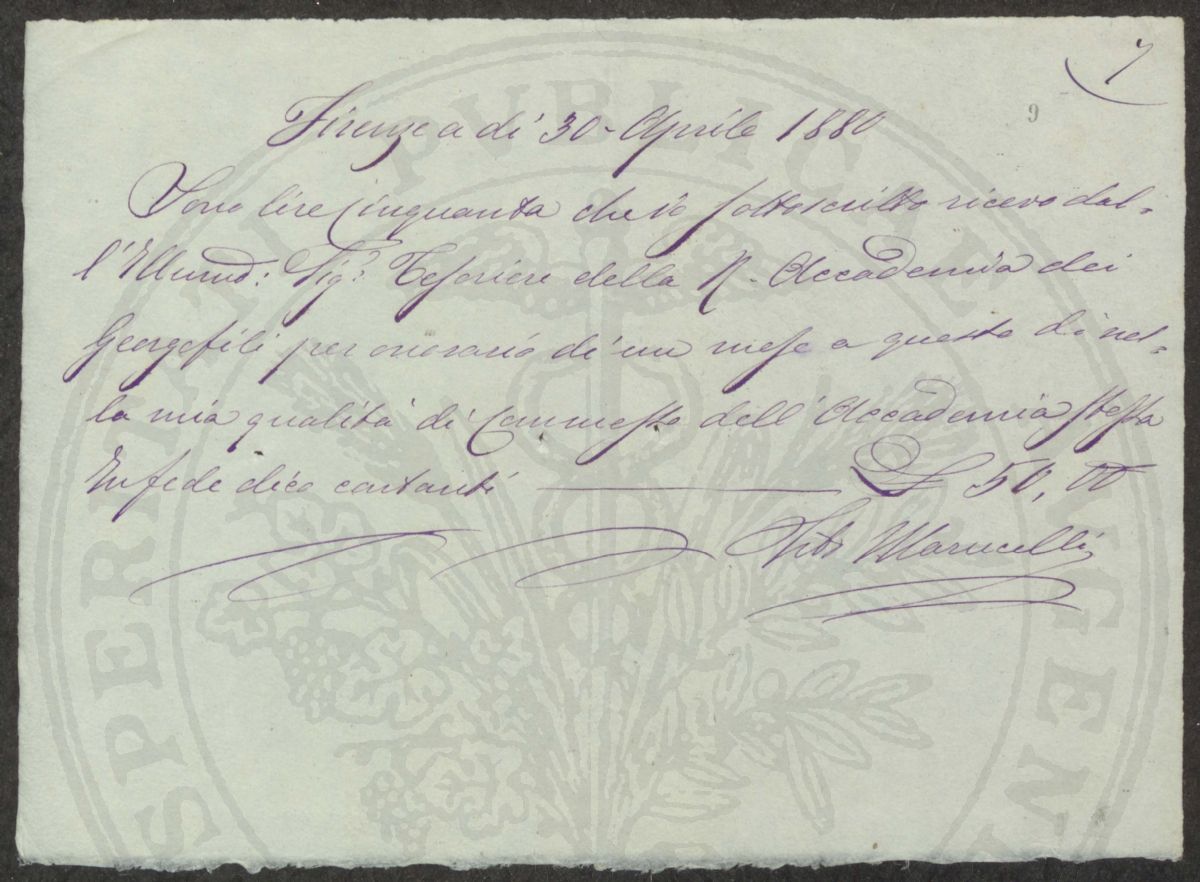 7
9
Firenze a dì 30 - Aprile 1880
Sono lire cinquanta che io sottoscritto ricevo dal-
l'Illumo: Sigr: Tesoriere della R. Accademia dei
Georgofili per onorario di un mese a questo dì nel-
la mia qualità di Commesso dell'Accademia stessa
In fede dico contanti — £ 50,00
Maruccelli
PROSPERITATI PVBLICAE AVGENDAE